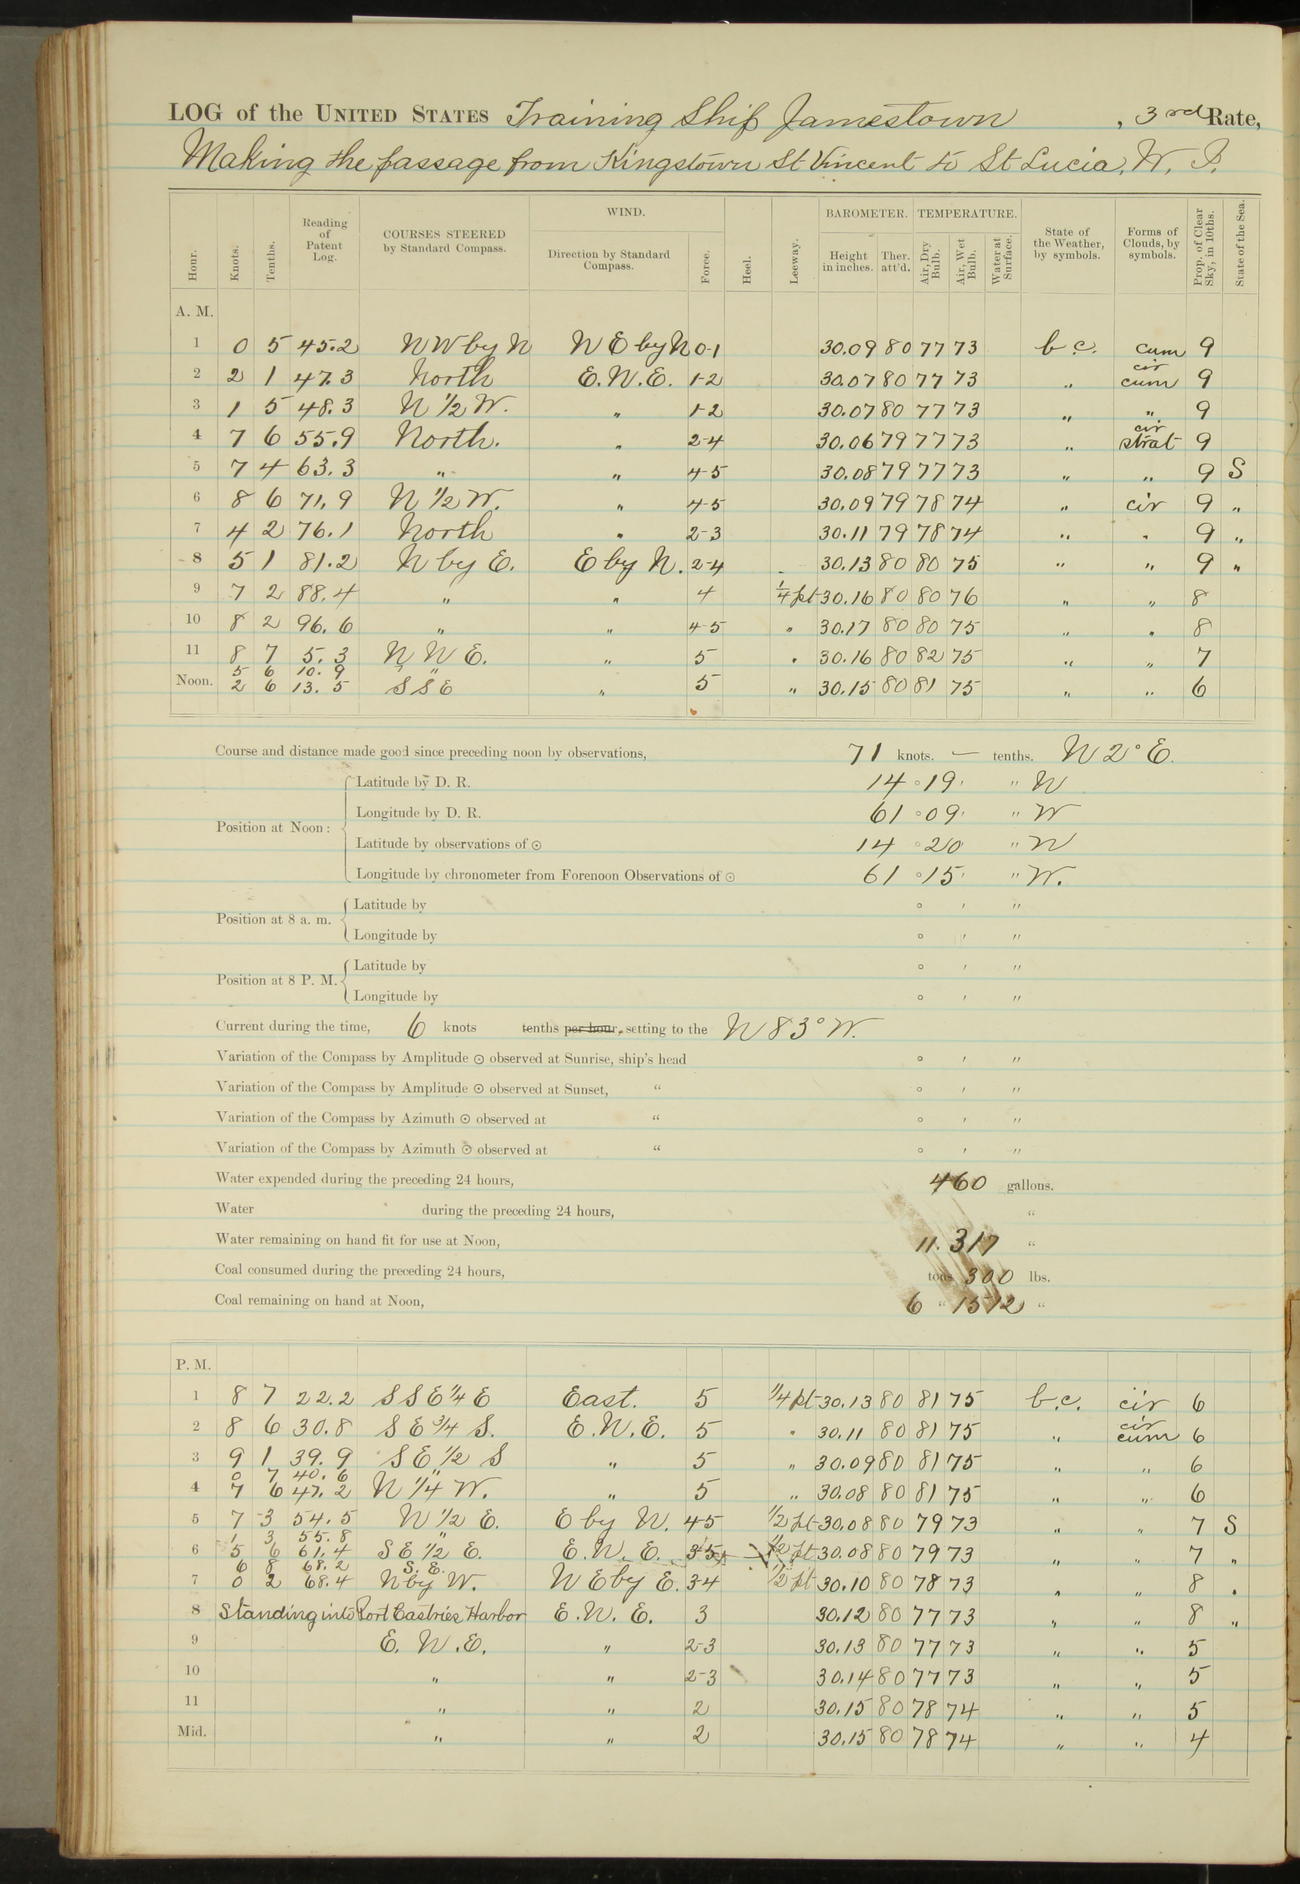 LOG of the UNITED STATES Training Ship Jamestown, 3rd Rate,
Making the passage from Kingstown St Vincent to St Lucia, W. I.
Hour. Knots. Tenths. Reading of Patent Log. COURSES STEERED by Standard Compass. WIND. Direction by Standard Compass. Force. Heel. Leeway. BAROMETER. Height in inches. Ther. att'd. TEMPERATURE. Air, Dry Bulb. Air, Wet Bulb. Water at Surface. State of the Weather, by symbols. Forms of Clouds, by symbols. Prop. of Clear Sky, in 10ths. State of the Sea.
A. M.
1 0 5 45.2 NW by N NE by N 0-1 30.09 80 77 73 b.c. cum 9
2 2 1 47.3 North E.N.E. 1-2 30.07 80 77 73 " cir cum 9
3 1 5 48.3 N 1/2 W. " 1-2 30.07 80 77 73 " " 9
4 7 6 55.9 North. " 2-4 30.06 79 77 73 " cir strat 9
5 7 4 63.3 " " 4-5 30.08 79 77 73 " " 9 S
6 8 6 71.9 N 1/2 W. " 4-5 30.09 79 78 74 " cir 9 "
7 4 2 76.1 North " 2-3 30.11 79 78 74 " " 9 "
8 5 1 81.2 N by E. E by N. 2-4 30.13 80 80 75 " " 9 "
9 7 2 88.4 " " 4 1/4 pt 30.16 80 80 76 " " 8
10 8 2 96.6 " " 4-5 " 30.17 80 80 75 " " 8
11 8 7 5.3 N N E. " 5 " 30.16 80 82 75 " " 7
5 6 10.9 " "
Noon. 2 6 13.5 S S E " 5 " 30.15 80 81 75 " " 6
Course and distance made good since preceding noon by observations, 71 knots. — tenths. N 2° E.
Position at Noon:
Latitude by D. R. 14 ° 19 ' " N
Longitude by D. R. 61 ° 09 ' " W
Latitude by observations of ☉ 14 ° 20 " N
Longitude by chronometer from Forenoon Observations of ☉ 61 ° 15 ' " W.
Position at 8 a. m.
Latitude by ° ' "
Longitude by ° ' "
Position at 8 P. M.
Latitude by ° ' "
Longitude by ° ' "
Current during the time, 6 knots tenths per hour, setting to the N 83° W.
Variation of the Compass by Amplitude ☉ observed at Sunrise, ship's head ° ' "
Variation of the Compass by Amplitude ☉ observed at Sunset, " ° ' "
Variation of the Compass by Azimuth ☉ observed at " ° ' "
Variation of the Compass by Azimuth ☉ observed at " ° ' "
Water expended during the preceding 24 hours, 460 gallons.
Water during the preceding 24 hours, "
Water remaining on hand fit for use at Noon, 11.317 "
Coal consumed during the preceding 24 hours, tons 300 lbs.
Coal remaining on hand at Noon, 6 " 1512 "
P. M.
1 8 7 22.2 S S E 1/4 E East. 5 1/4 pt 30.13 80 81 75 b.c. cir 6
2 8 6 30.8 S E 3/4 S. E.N.E. 5 " 30.11 80 81 75 " cir cum 6
3 9 1 39.9 S E 1/2 S " 5 " 30.09 80 81 75 " " 6
0 7 40.6 "
4 7 6 47.2 N 1/4 W. " 5 " 30.08 80 81 75 " " 6
5 7 3 54.5 N 1/2 E. E by N. 4-5 1/2 pt 30.08 80 79 73 " " 7 S
1 3 55.8 "
6 5 6 61.4 S E 1/2 E. E.N.E. 3-5 1/2 pt 30.08 80 79 73 " " 7 "
6 8 68.2 S. E.
7 0 2 68.4 N by W. N E by E. 3-4 1/2 pt 30.10 80 78 73 " " 8 "
8 Standing into Port Castries Harbor E.N.E. 3 30.12 80 77 73 " " 8 "
9 E.N.E. " 2-3 30.13 80 77 73 " " 5
10 " " 2-3 30.14 80 77 73 " " 5
11 " " 2 30.15 80 78 74 " " 5
Mid. " " 2 30.15 80 78 74 " " 4